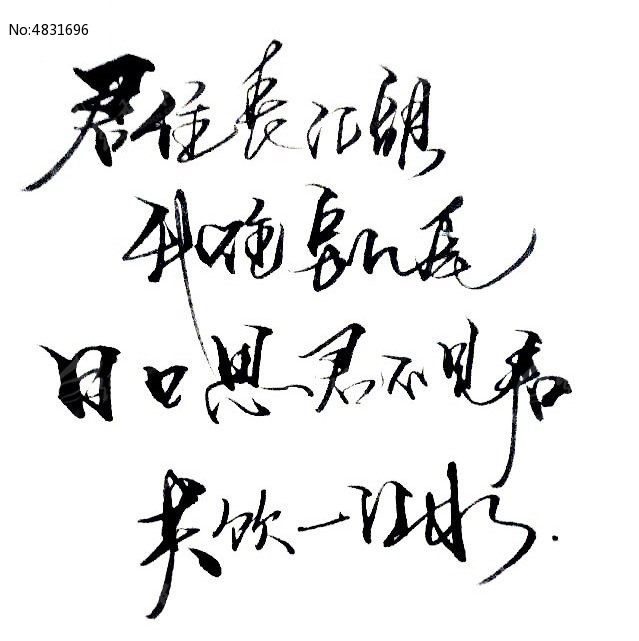 No:4831696
君住長江頭
我住長江尾
日日思君不見君
共飲一江水.